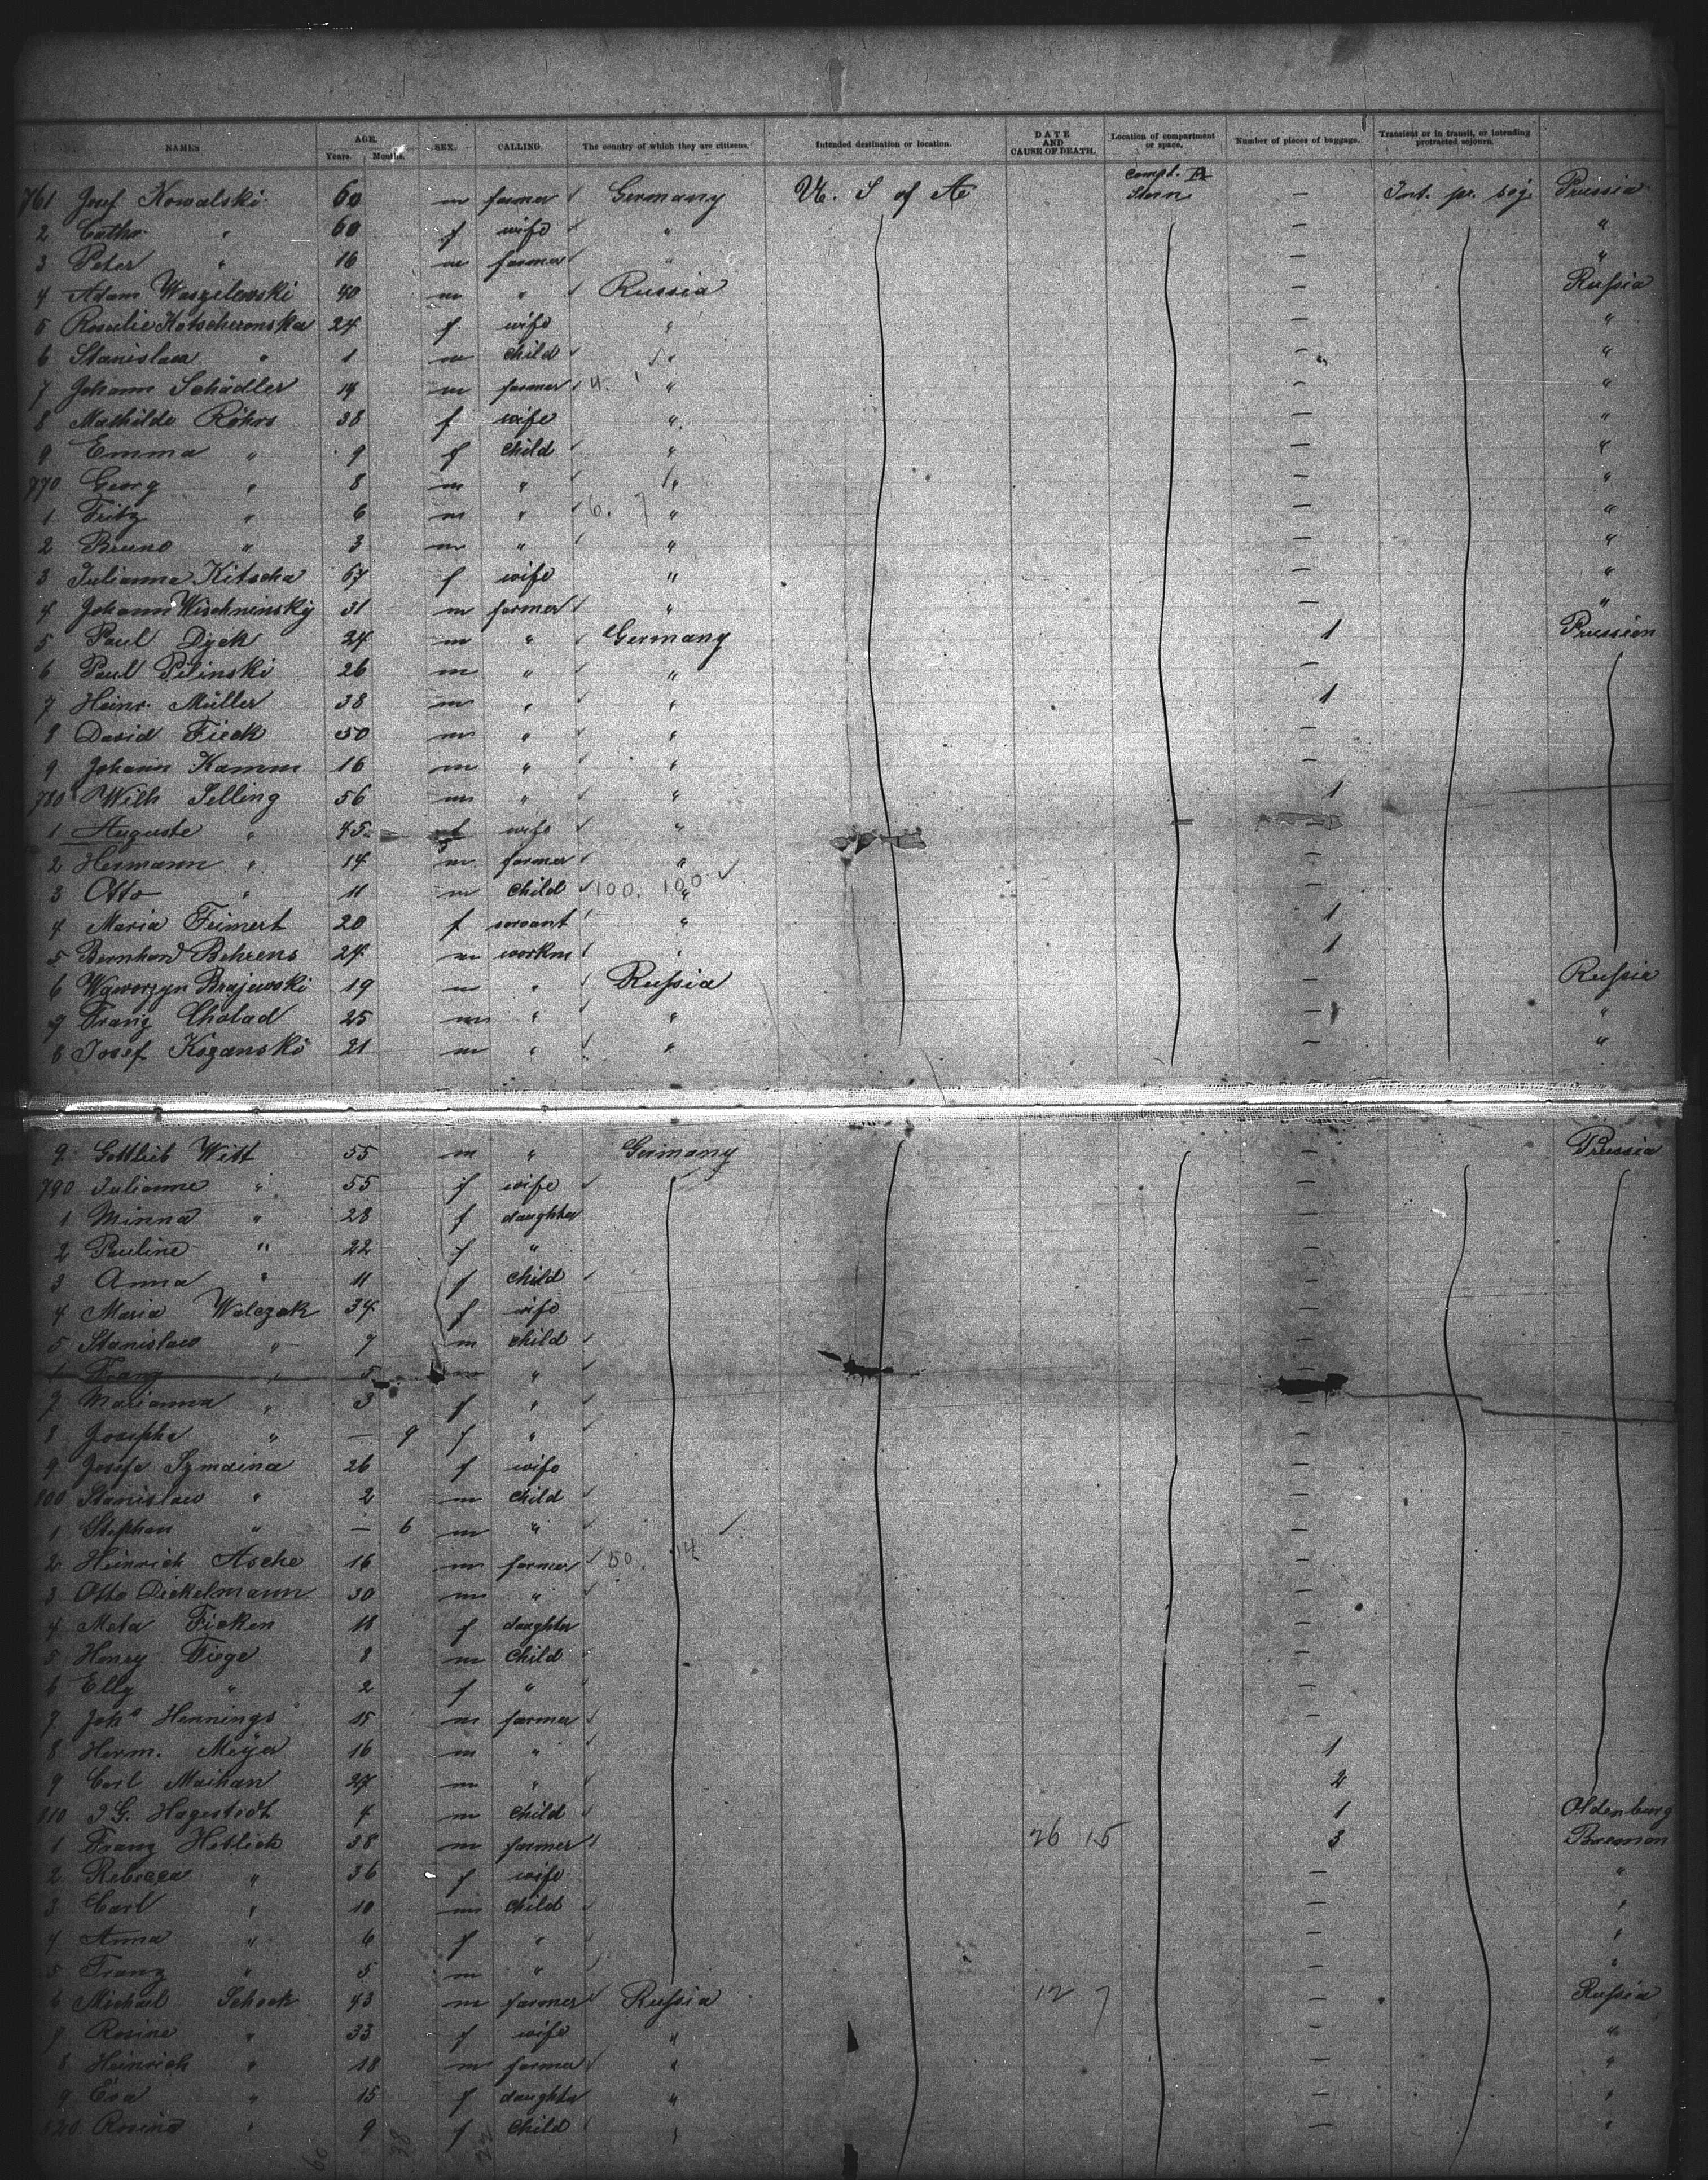 NAMES AGE. Years. Months. SEX. CALLING. The country of which they are citizens. Intended destination or location. DATE AND CAUSE OF DEATH. Location of compartment or space. Number of pieces of baggage. Transient or in transit, or intending protracted sojourn.
761 Josef Kowalski 60 m farmer Germany U. S of A compt. A Stern — Int. pr. soj. Prussia
2 Cathr. " 60 f wife " — "
3 Peter " 16 m farmer " — "
4 Adam Waszelewski 40 m " Russia — Russia
5 Rosalie Kotscheronska 24 f wife " — "
6 Stanislaw " 1 m child " — "
7 Johann Schädler 19 m farmer 4. 1 " — "
8 Mathilde Röhrs 38 f wife " — "
9 Emma " 9 f child " — "
770 Georg " 8 m " " — "
1 Fritz " 6 m " 6. 7 " — "
2 Bruno " 3 m " " — "
3 Julianna Kitscha 67 f wife " — "
4 Johann Wischninsky 31 m farmer " — "
5 Paul Dyck 24 m " Germany 1 Prussian
6 Paul Pilinski 26 m " " —
7 Heinr. Müller 38 m " " 1
8 David Fieck 50 m " " —
9 Johann Kamm 16 m " " —
780 Wilh Selling 56 m " " 1
1 Auguste " 45 f wife "
2 Hermann " 14 m farmer " —
3 Otto " 11 m child 100. 100 " —
4 Maria Feimert 20 f servant " 1
5 Bernhard Behrens 24 m workm " 1
6 Waworzyn Brajewski 19 m " Russia — Russia
7 Franz Cholad 25 m " " — "
8 Josef Kozanski 21 m " " — "
9 Gottlieb Witt 55 m " Germany — Prussia
790 Julianne " 55 f wife —
1 Minna " 28 f daughter —
2 Pauline " 22 f " —
3 Anna " 11 f child —
4 Maria Walczak 34 f wife —
5 Stanislaw " 7 m child —
6 Franz " 5 m " —
7 Marianna " 3 f " —
8 Josepha " — 9 f " —
9 Josefa Szmaina 26 f wife —
800 Stanislaw " 2 m child —
1 Stephan " — 6 m " —
2 Heinrich Asche 16 m farmer 50. 14 —
3 Otto Dickelmann 30 m " —
4 Meta Ficken 18 f daughter —
5 Henry Tiege 8 m child —
6 Elly " 2 f " —
7 Joh. Hennings 15 m farmer —
8 Herm. Meyer 16 m " 1
9 Carl Maihan 27 m " 2
810 J G. Hagestedt 4 m child 1 Oldenburg
1 Franz Hetlich 38 m farmer 26 15 3 Bremen
2 Rebecca " 36 f wife — "
3 Carl " 10 m child — "
4 Anna " 6 f " — "
5 Franz " 5 m " — "
6 Michael Schock 43 m farmer Russia 12 7 — Russia
7 Rosine " 33 f wife " — "
8 Heinrich " 18 m farmer " — "
9 Eva " 15 f daughter " — "
820 Rosina " 9 f child " — "
60 38 22